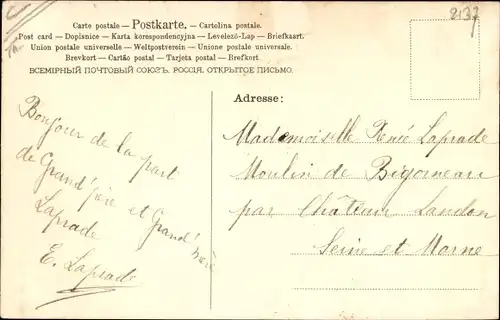 8137
Carte postale — Postkarte. — Cartolina postale.
Post card — Dopisnice — Karta korespondencyjna — Levelező-Lap — Briefkaart.
Union postale universelle — Weltpostverein — Unione postale universale.
Brevkort — Cartão postal — Tarjeta postal — Brefkort
ВСЕМІРНЫЙ ПОЧТОВЫЙ СОЮЗЪ. РОССІЯ. ОТКРЫТОЕ ПИСЬМО.
Bonjour de la part
de Grand'père et Grand'mère
Laprade
E. Laprade
Adresse:
Mademoiselle Renée Laprade
Moulin de Bigorneau
par Château Landon
Seine et Marne